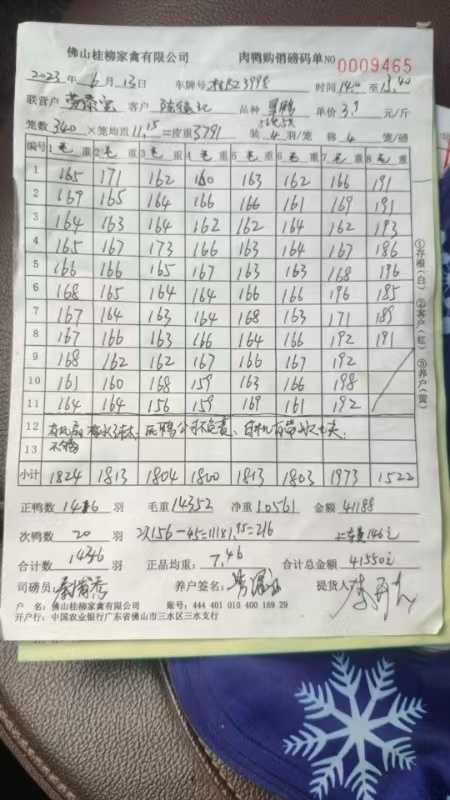 佛山桂柳家禽有限公司 肉鸭购销磅码单 NO 0009465
2023年6月13日 车牌号 时间14:00至15:40
联营户 客户 品种 单价3.9元/斤
笼数340×笼均重11.15=皮重3791 装4羽/笼 称4笼/磅
编号 1毛重 2毛重 3毛重 4毛重 5毛重 6毛重 7毛重 8毛重
1 165 171 162 160 163 162 166 191
2 169 165 164 166 166 161 169 191
3 164 163 164 162 162 164 162 193
4 165 167 173 166 163 164 167 186
5 166 166 165 167 163 163 168 196
6 168 165 164 164 166 166 196 185
7 167 164 163 164 168 163 171 189
8 167 166 163 166 164 166 192 191
9 168 162 162 167 166 167 192
10 161 160 168 159 163 166 198
11 164 164 156 159 169 161 192
12
13
小计 1824 1813 1804 1800 1813 1803 1973 1522
①存根(白) ②客户(红) ③养户(黄)
正鸭数1416羽 毛重14352 净重10561 金额41188
次鸭数20羽 2X156-45=111X1.95=216 146元
合计数 羽 正品均重:7.46 合计总金额41550元
司磅员: 养户签名: 提货人:
户 名:佛山桂柳家禽有限公司 账号:444 401 010 400 189 29
开户行:中国农业银行广东省佛山市三水区三水支行